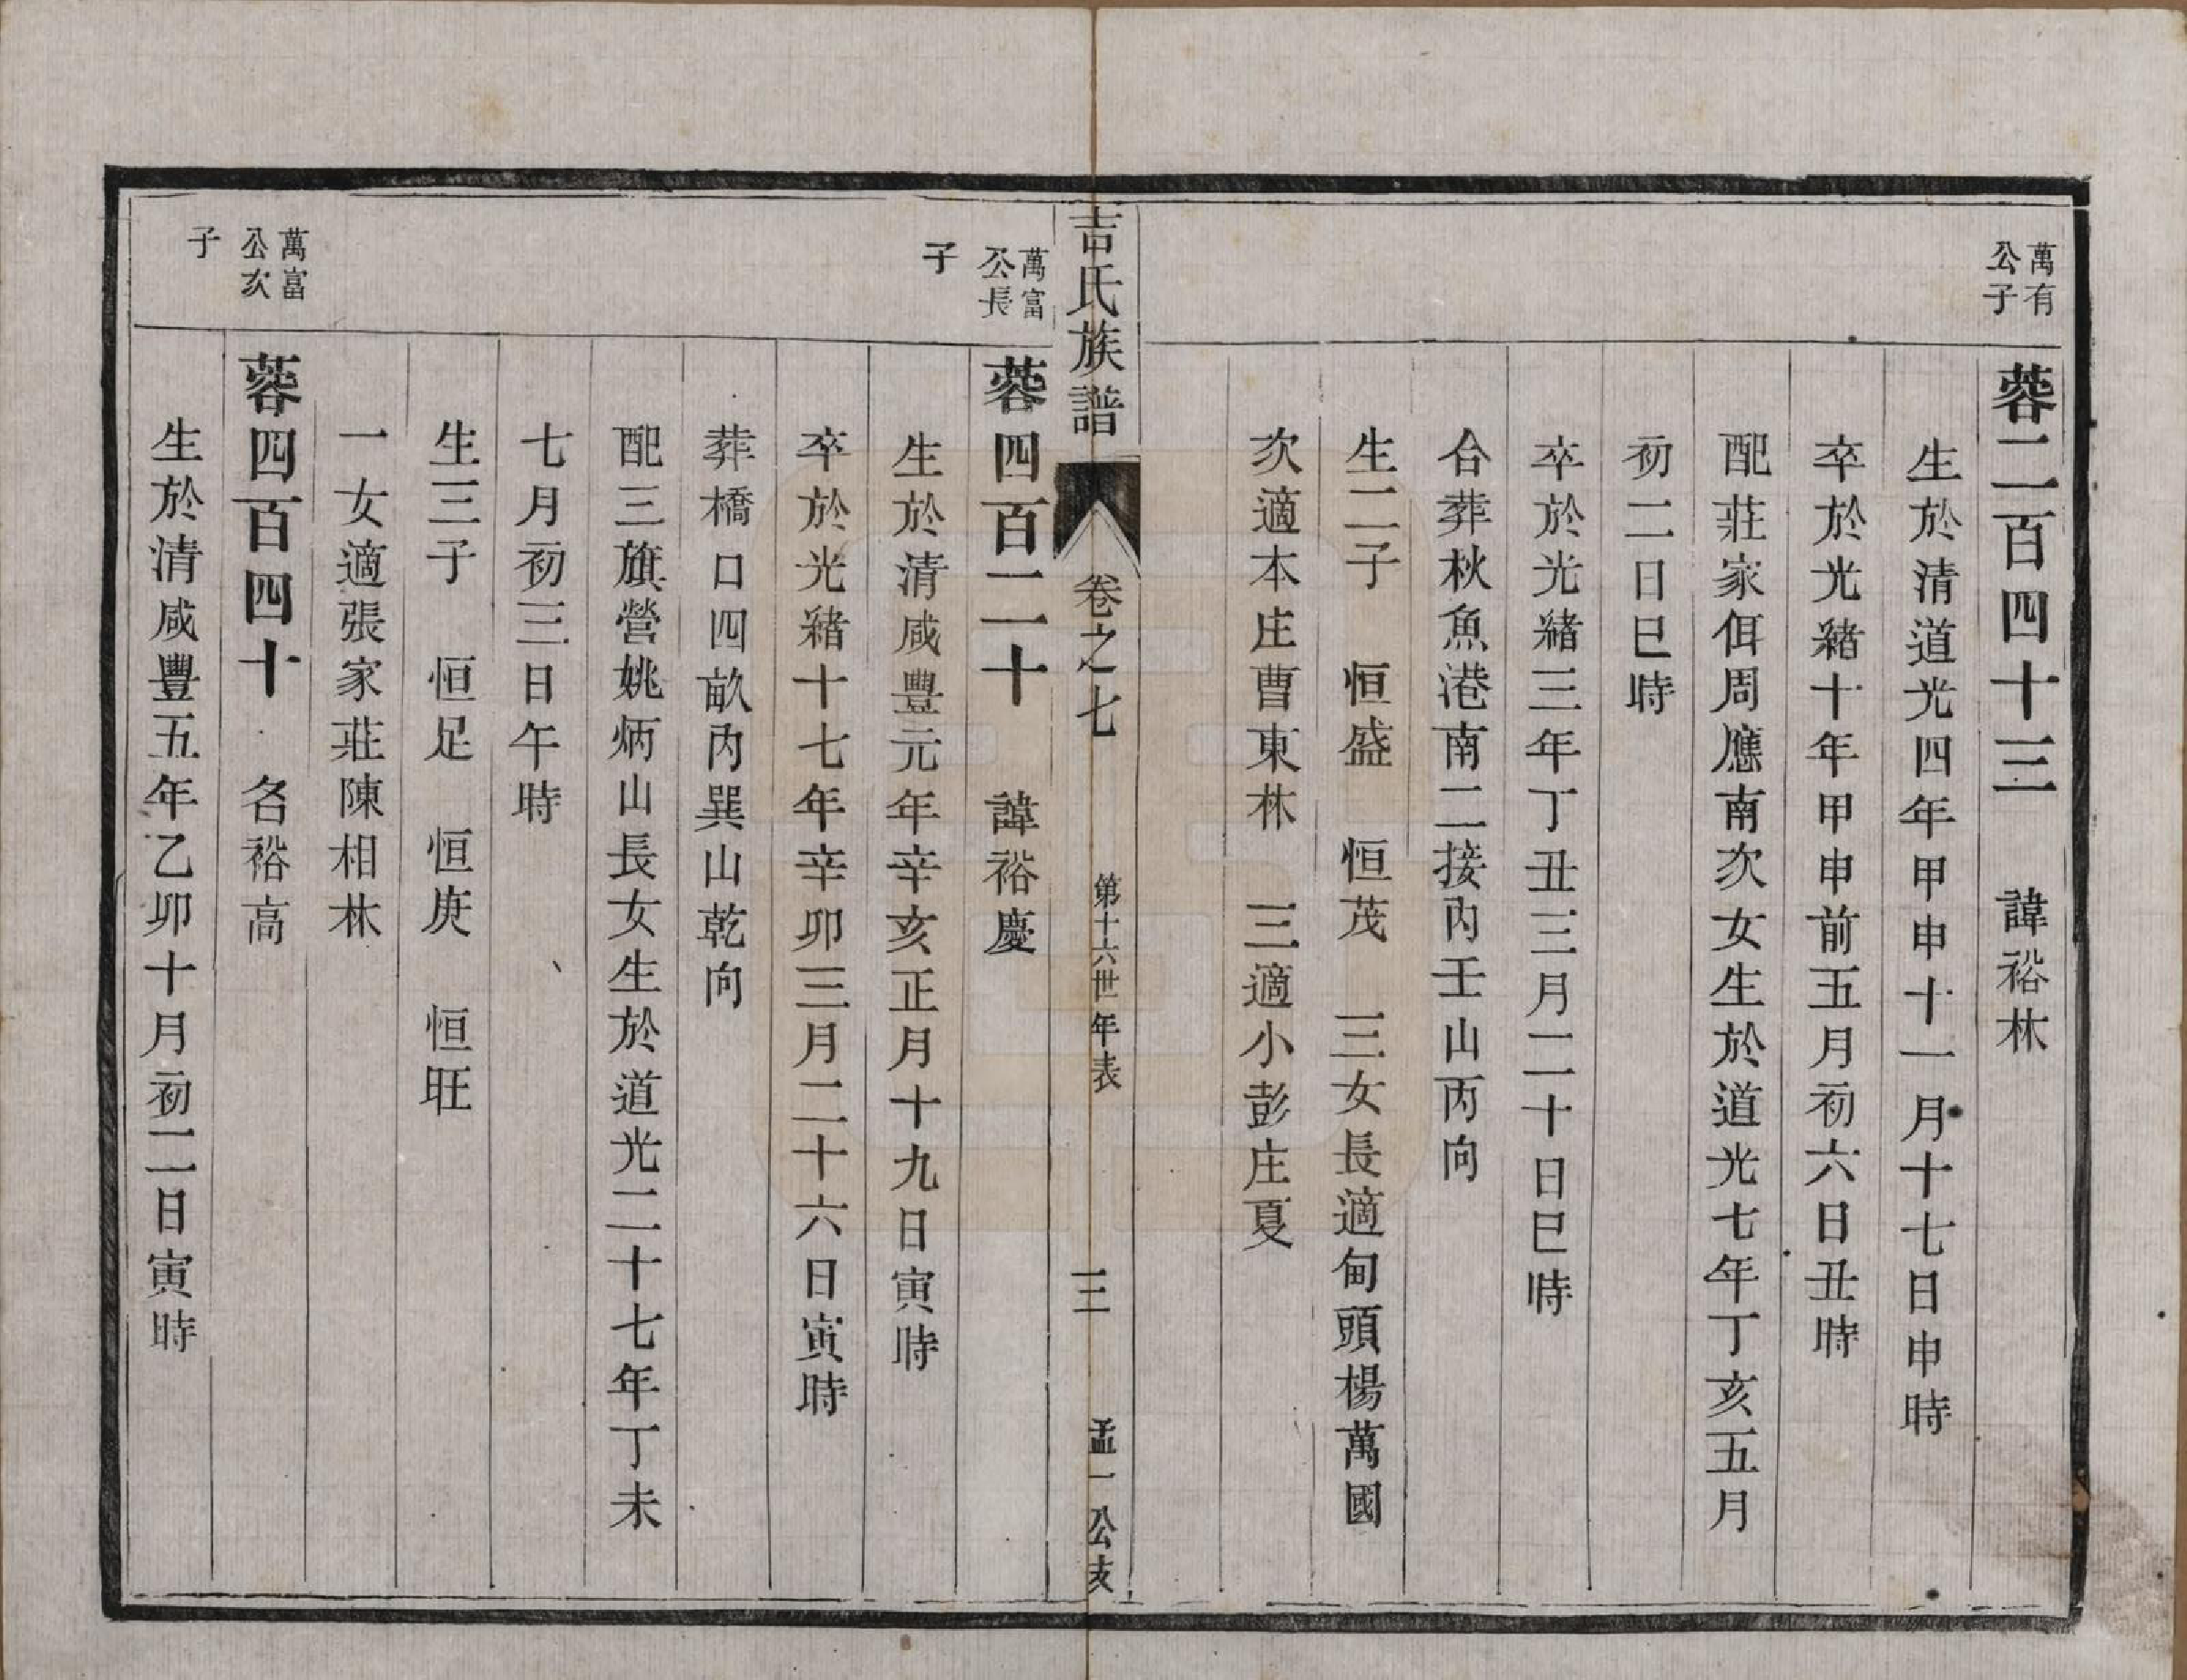 萬有
公子
蓉二百四十三　諱裕林
生於清道光四年甲申十一月十七日申時
卒於光緒十年甲申前五月初六日丑時
配莊家佴周應南次女生於道光七年丁亥五月
初二日巳時
卒於光緒三年丁丑三月二十日巳時
合葬秋魚港南二接內壬山丙向
生二子　恒盛　恒茂　三女長適甸頭楊萬國
次適本庄曹東林　三適小彭庄夏
吉氏族譜　卷之七　第十六世年表　三　孟一公支
萬富
公長
子
蓉四百二十　諱裕慶
生於清咸豐元年辛亥正月十九日寅時
卒於光緒十七年辛卯三月二十六日寅時
葬橋口四畝內巽山乾向
配三旗營姚炳山長女生於道光二十七年丁未
七月初三日午時
生三子　恒足　恒庚　恒旺
一女適張家莊陳相林
萬富
公次
子
蓉四百四十　名裕高
生於清咸豐五年乙卯十月初二日寅時